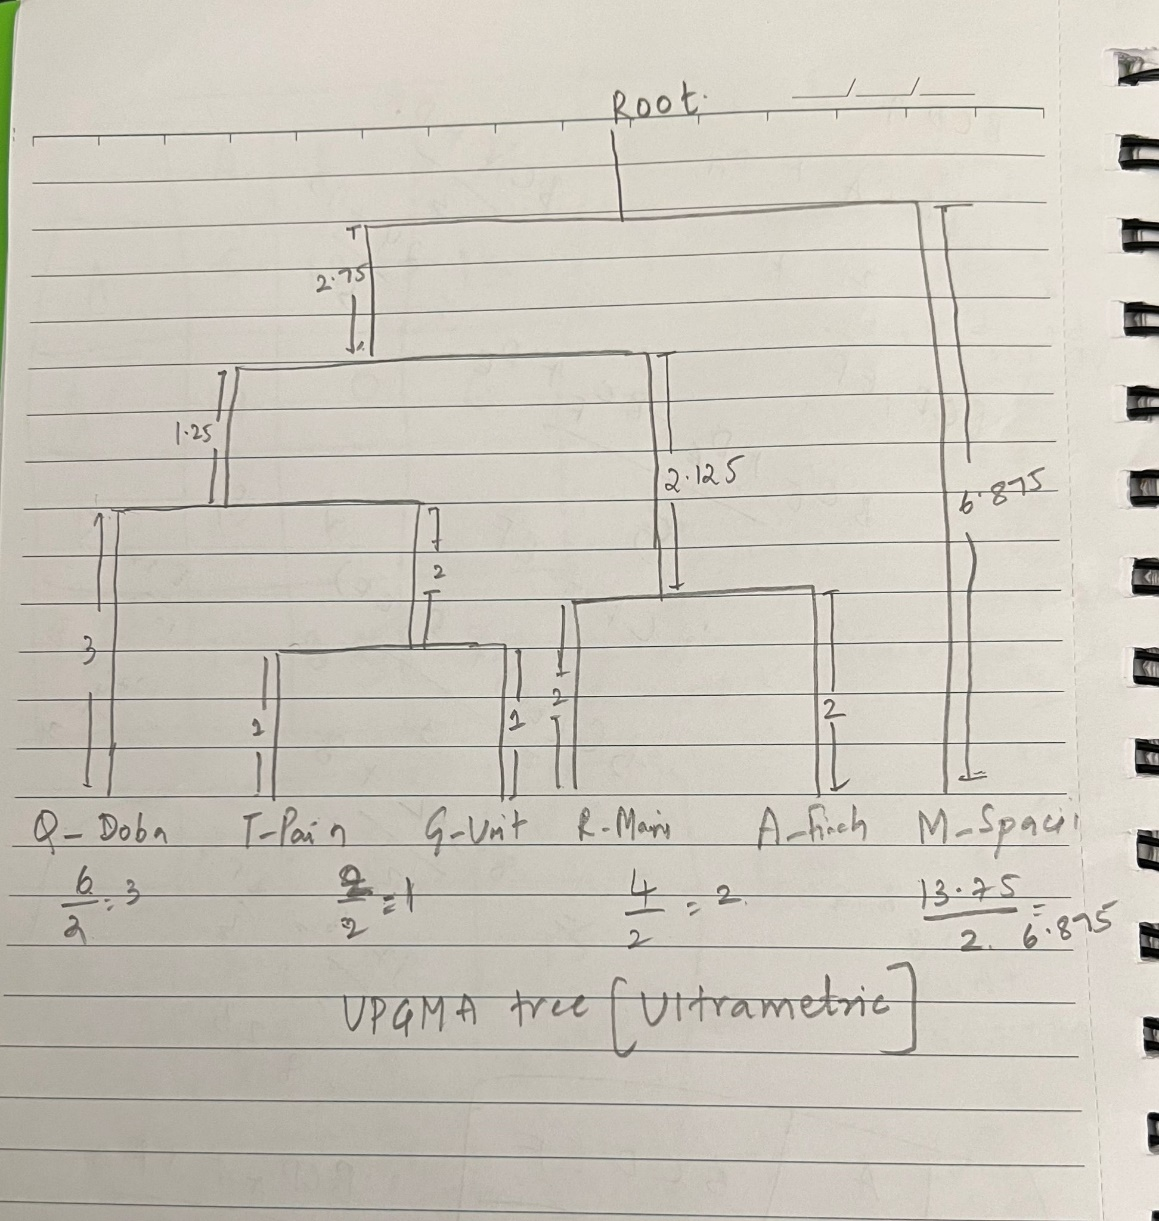 Root.
2.75
1.25
2.125
6.875
2
3
2
1
1
2
2
Q-Doba T-Pain G-Unit R-Mani A-Finch M-Spacii
6/2 = 3 2/2 = 1 4/2 = 2. 13.75/2. = 6.875
UPGMA tree [Ultrametric]